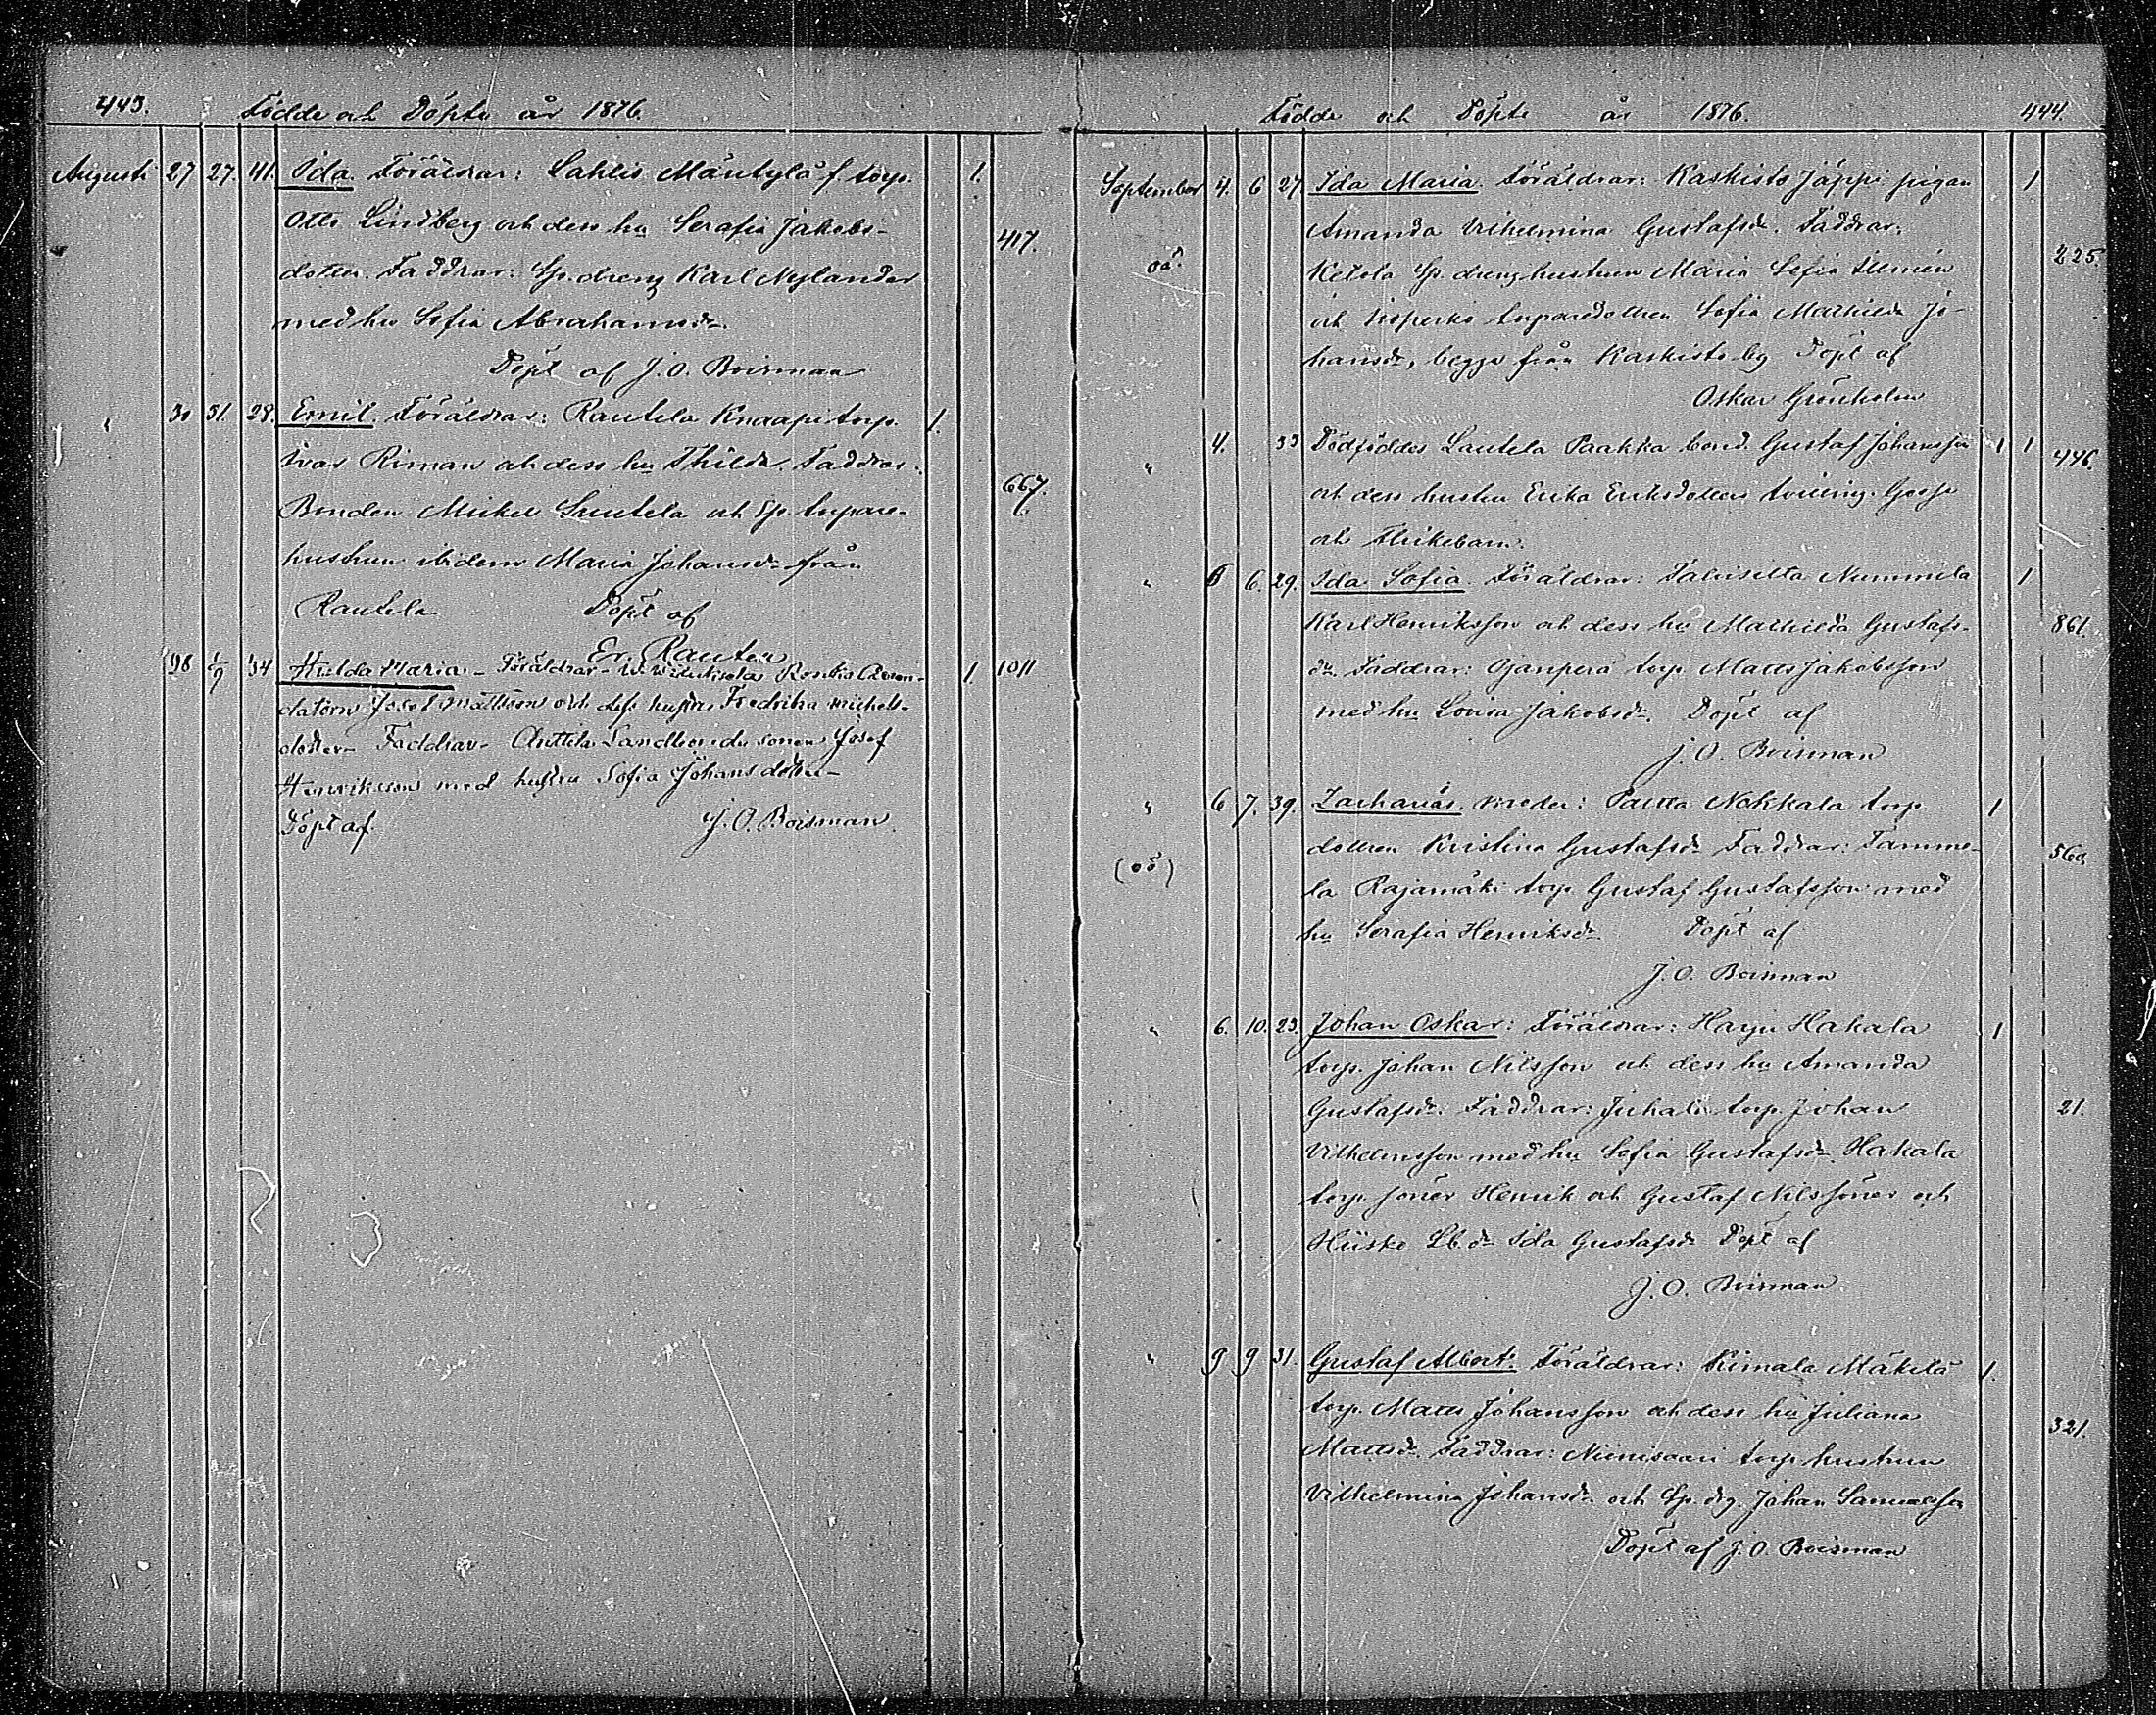 443. Födde och Döpte år 1876.
Augusti 27 27. 41. Ida. Föräldrar: Sahlis Mäntylä torp. 1.
Otto Lindberg och dess hu Serafia Jakobs- 417.
dotter. Faddrar: Sp. dreng Karl Nylander
med hu Sofia Abrahamsdr.
Döpt af J. O. Boisman
" 30 31. 28. Emil. Föräldrar: Rautela Knaapi torp. 1.
Ivar Riman och dess hu Thilda. Faddrar:
Bonden Mickel och torpare- 667.
hustrun ibidem Maria Johansdr från
Rautela Döpt af
Er. Rautell
28 1/9 34 Hulda Maria - Föräldrar - Ronkka
datorn Josef Mattsson och dess hustru Fredrika Michels- 1. 1011
dotter - Faddrar - Anttila Landbonde sonen Josef
Henriksson med hustru Sofia Johansdotter -
Döpt af J. O. Boisman
Födde och Döpte år 1876. 444.
September 4. 6 27 Ida Maria Föräldrar: Kaskisto Jäppi pigan 1
Amanda Vilhelmina Gustafsdr. Faddrar:
oä. Ketola Sp. dreng hustrun Maria Sofia 225.
och torparedottren Sofia Mathilda Jo-
hansdr, begge från Kaskisto by Döpt af
Oskar Grönholm
" 4. 33 Dödföddes Lautela Paakka bond. Gustaf Johansson 1 1 446.
och dess hustru Erika Eriksdotters tvilling. Gosse
och Flickebarn.
" 5 6. 29. Ida Sofia. Föräldrar: Talvisilta Nummila 1
Karl Henriksson och dess hu Mathilda Gustafs- 861.
dr. Faddrar: Ojanperä torp. Matts Jakobsson
med hu Lovisa Jakobsdr. Döpt af
J. O. Boisman
" 6 7. 39. Zacharias. Moder: Nokkala torp. 1
dottren Kristina Gustafsdr Faddrar: Tamme-
(oä) la Rajamäki torp Gustaf Gustafsson med 560.
hu Serafia Henriksdr Döpt af
J. O. Boisman
" 6. 10. 23. Johan Oskar: Föräldrar: Harju Hakala 1
torp. Johan Nilsson och dess hu Amanda
Gustafsdr. Faddrar: Juhala torp. Johan 21.
Vilhelmsson med hu Sofia Gustafsdr. Hakala
torp. söner Henrik och Gustaf Nilssöner och
Hüsko Lb. dr Ida Gustafsdr Döpt af
J. O. Boisman
" 9 9 31. Gustaf Albert. Föräldrar: Rimala Mäkilä 1.
torp. Matts Johansson och dess hu Juliana
Mattsdr. Faddrar: Niinisaari torp. hustrun 321.
Vilhelmina Johansdr och Sp. drg. Johan Samuelsson
Döpt af J. O. Boisman